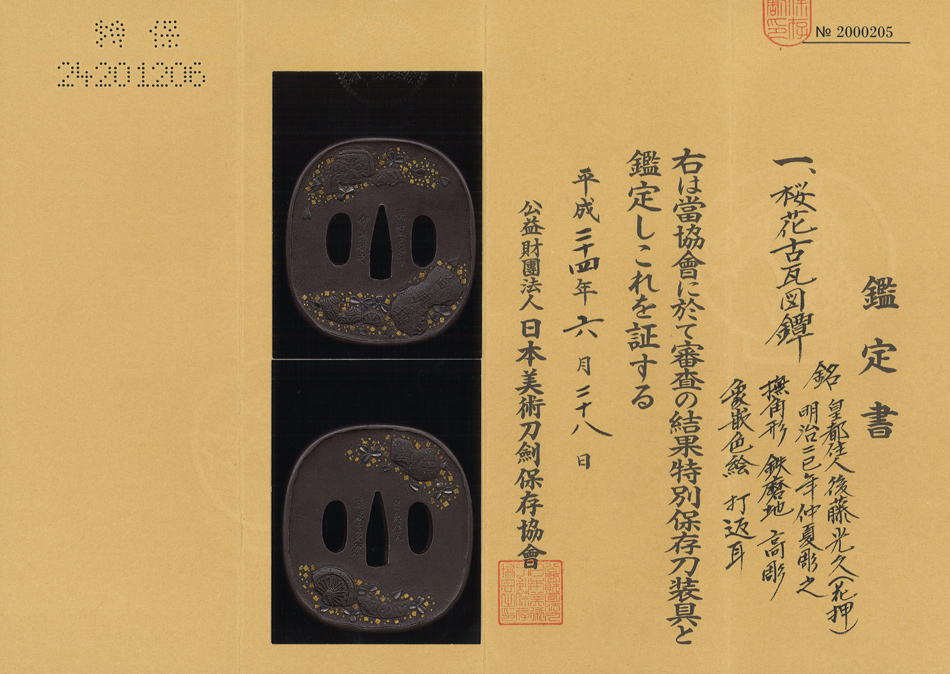 № 2000205
鑑定書
一、桜花古瓦図鐔
銘 皇都住人後藤光久（花押）
明治二巳年仲夏彫之
撫角形 鉄磨地 高彫
象嵌色絵 打返耳
右は當協會に於て審査の結果特別保存刀装具と
鑑定しこれを証する
平成二十四年六月二十八日
公益財團法人 日本美術刀劍保存協會
特保
24201206